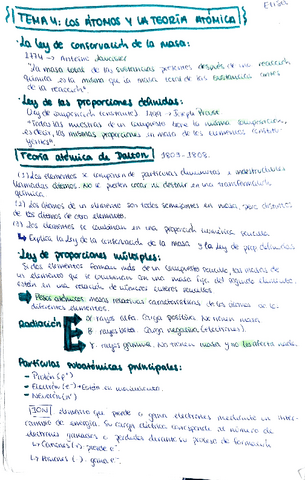 Elisa
TEMA 4: LOS ÁTOMOS Y LA TEORÍA ATÓMICA
· La ley de conservación de la masa:
1774 → Antoine Lavoisier
"La masa total de las sustancias presentes después de una reacción
química es la misma que la masa total de las sustancias antes
de la reacción".
· Ley de las proporciones definidas:
Ley de composición constante) 1799 → Joseph Proust
"Todas las muestras de un compuesto tiene la misma composición,
es decir, las mismas proporciones en masa de los elementos constitu-
yentes".
Teoría atómica de Dalton 1803-1808.
(1) Los elementos se componen de partículas diminutas e indestructibles
llamadas átomos. No se pueden crear ni destruir en una transformación
química.
(2) Los átomos de un elemento son todos semejantes en masa, pero distintos
de los átomos de otro elemento.
(3) Los elementos se combinan en una proporción numérica sencilla.
↳ Explica la ley de la conservación de la masa y la ley de prop. definidas.
· Ley de proporciones múltiples:
Si dos elementos forman más de un compuesto sencillo, las masas de
un elemento que se combinan con una masa fija del segundo elemento,
están en una relación de números enteros sencillos.
→ Pesos atómicos: masas relativas características de los átomos de los
diferentes elementos.
Radiación
α: rayos alfa. Carga positiva. No tienen masa.
β: rayos beta. Carga negativa (electrones).
γ: rayos gamma. No tienen masa y no les afecta nada.
Partículas subatómicas principales:
- Protón (p⁺)
- Electrón (e⁻) → Están en movimiento.
- Neutrón (n)
ION: elemento que pierde o gana electrones mediante un inter-
cambio de energía. Su carga eléctrica corresponde al número de
electrones ganados o perdidos durante su proceso de formación
↳ Cationes (+): pierde e⁻.
↳ Aniones (-): gana e⁻.